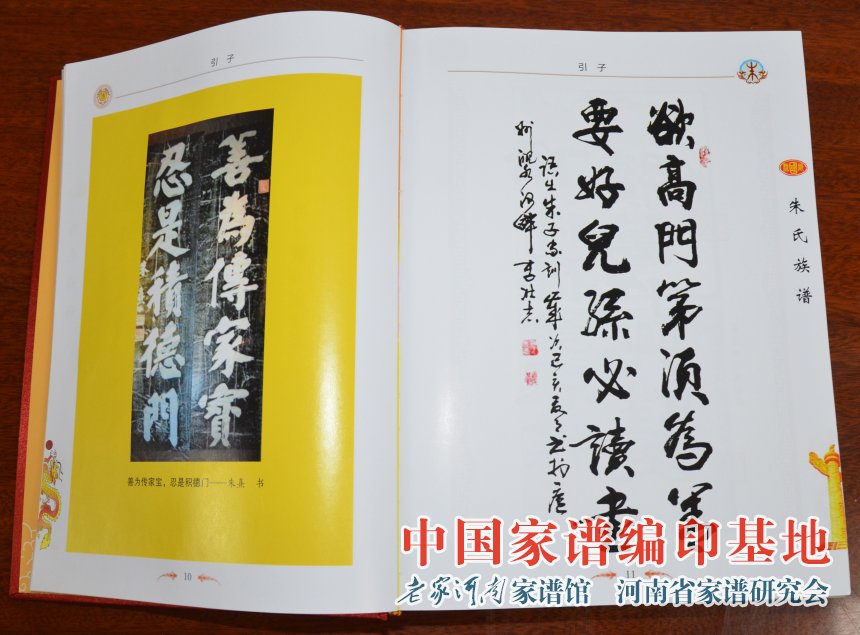 引子
善為傳家寶
忍是積德門
善为传家宝，忍是积德门——朱熹 书
10
引子
朱
國
朱氏族谱
欲高門第須為善
要好兒孫必讀書
11
中国家谱编印基地
老家河南家谱馆 河南省家谱研究会